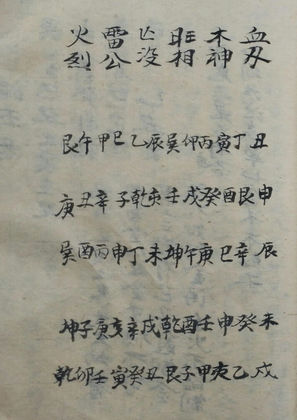 血刃 丑丁 申艮 辰辛 未癸 戌乙
木神 寅丙 酉癸 巳庚 申壬 亥甲
旺相 卯巽 戌壬 午坤 酉乾 子艮
亡没 辰乙 亥乾 未丁 戌辛 丑癸
雷公 巳甲 子辛 申丙 亥庚 寅壬
火烈 午艮 丑庚 酉巽 子坤 卯乾